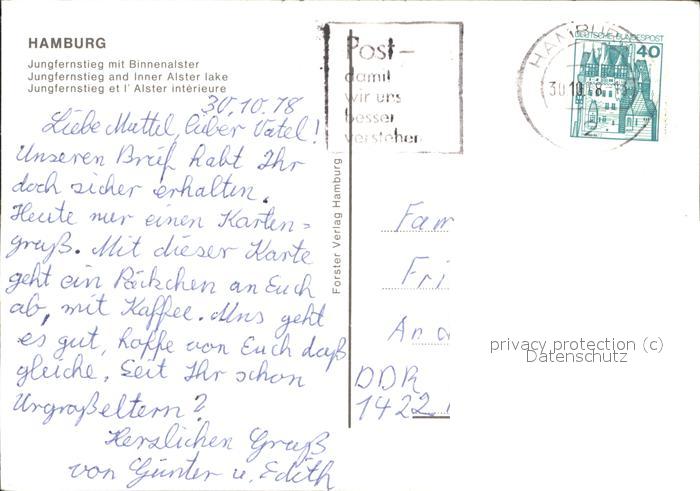 HAMBURG
Jungfernstieg mit Binnenalster
Jungfernstieg and Inner Alster lake
Jungfernstieg et l' Alster intérieure
30.10.78
Liebe Muttel, lieber Vatel!
Unseren Brief habt Ihr
doch sicher erhalten.
Heute nur einen Karten=
gruß. Mit dieser Karte
geht ein Päckchen an Euch
ab, mit Kaffee. Uns geht
es gut, hoffe von Euch daß
gleiche. Seit Ihr schon
Urgroßeltern?
Herzlichen Gruß
von Günter u. Edith
Forster Verlag Hamburg
Post-
damit
wir uns
besser
verstehen
HAMBURG
30.10.78
DEUTSCHE BUNDESPOST
40
Fam
Fri
An d
DDR
1422
privacy protection (c)
Datenschutz